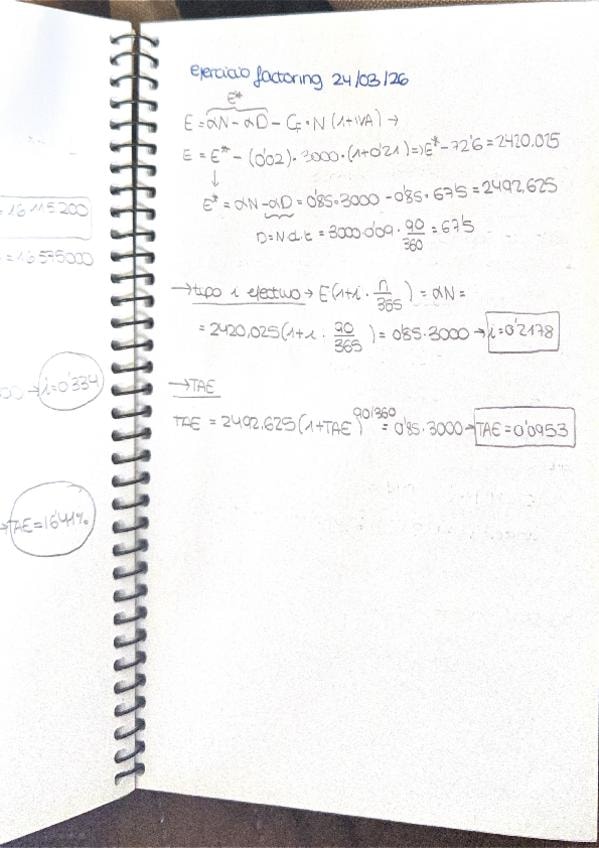 = 16 115 200
= 16 575000
00 → i=0'334
→ TAE = 16'41%
ejercicio factoring 24/03/26
E*
E = αN - αD - C_F · N (1+IVA) →
E = E* - (0'02) · 3000 · (1+0'21) => E* - 72'6 = 2420,025
↓
E* = αN - αD = 0'85 · 3000 - 0'85 · 67'5 = 2492,625
D = N·d·t = 3000·0'09 · 90/360 = 67'5
→ tipo i efectivo → E (1+i · n/365) = αN =
= 2420,025 (1+i · 90/365) = 0'85 · 3000 → i=0'2178
→ TAE
TAE = 2492,625 (1+TAE)^90/360 = 0'85 · 3000 → TAE = 0'0953